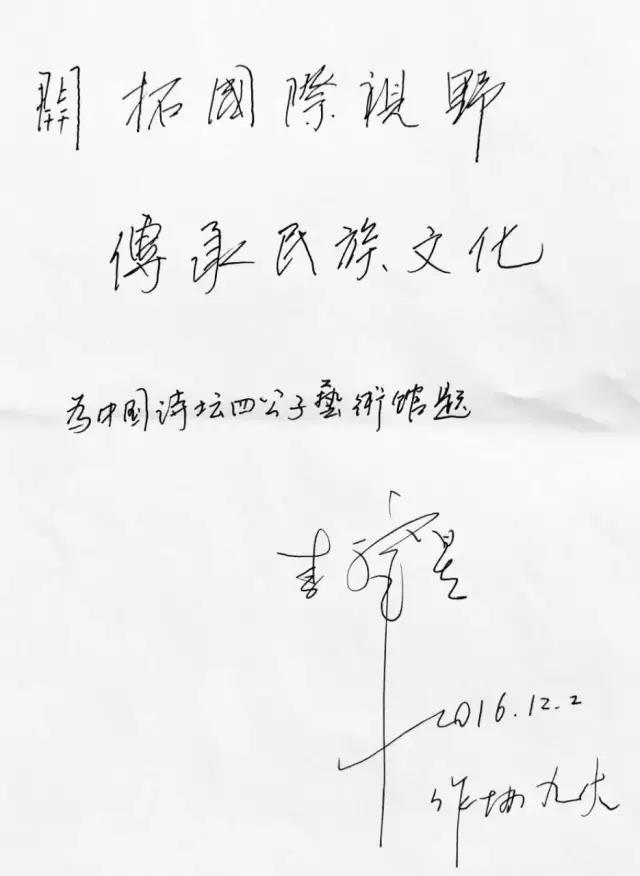 開拓國際視野
傳承民族文化
为中国诗坛四公子藝術馆题
李肇星
2016.12.2
作协九大